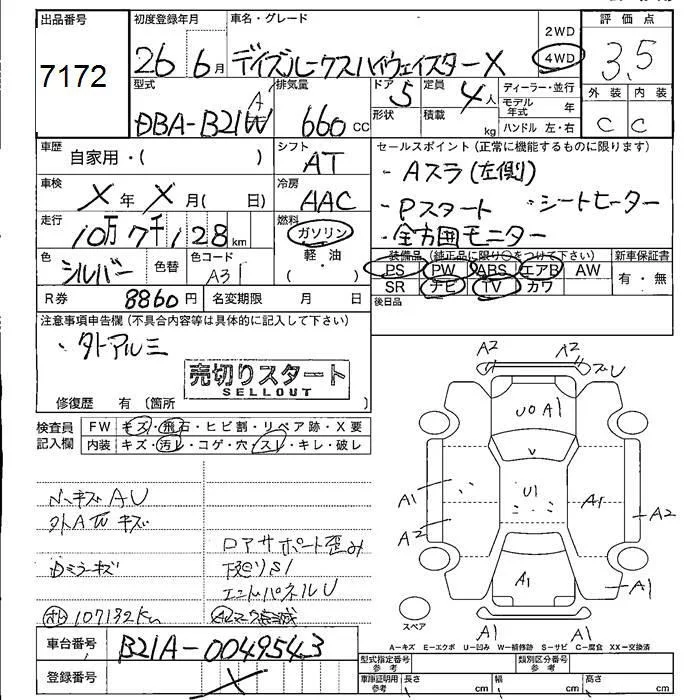 出品番号 初度登録年月 車名・グレード 2WD 評価点
7172 26年6月 デイズルークスハイウェイスターX 4WD 3.5
外装 内装
C C
型式 排気量 ドア 定員 ディーラー・並行
DBA-B21W A 660 CC 5 4人 モデル年式 年
形状 積載 kg ハンドル 左・右
車歴 シフト セールスポイント(正常に機能するものに限ります)
自家用・( ) AT ・Aスラ(左側)
車検 冷房
X年 X月( 日) AAC ・Pスタート ・シートヒーター
走行 燃料 ・全方囲モニター
10万7千128km ガソリン
軽油
・( )
色 色替 色コード 装備品(純正品に限り○をつけて下さい) 新車保証書
シルバー A31 PS PW ABS エアB AW 有・無
SR ナビ TV カワ
R券 8860円 名変期限 月 日 後日品
注意事項申告欄(不具合内容等は具体的に記入して下さい)
・タトアルミ
売切りスタート
SELLOUT
修復歴 有(箇所 )
検査員記入欄 FW キズ・飛石・ヒビ割・リペア跡・X要
内装 キズ・汚レ・コゲ・穴・スレ・キレ・破レ
キズAU
外AWキズ
ロアサポート歪み
Dミラーキズ
下廻りS1
エンドパネルU
107132km
A2 A2 ズレ
U0 A1
A1 U1 A1 A2
A2
A1 A1
A1 A1
スペア
A-キズ E-エクボ U-凹み W-補修跡 S-サビ C-腐食 XX-交換済
車台番号 B21A-0049543
登録番号 X
型式指定番号 参考 類別区分番号 参考
車庫証明用 参考 長さ cm 幅 cm 高さ cm